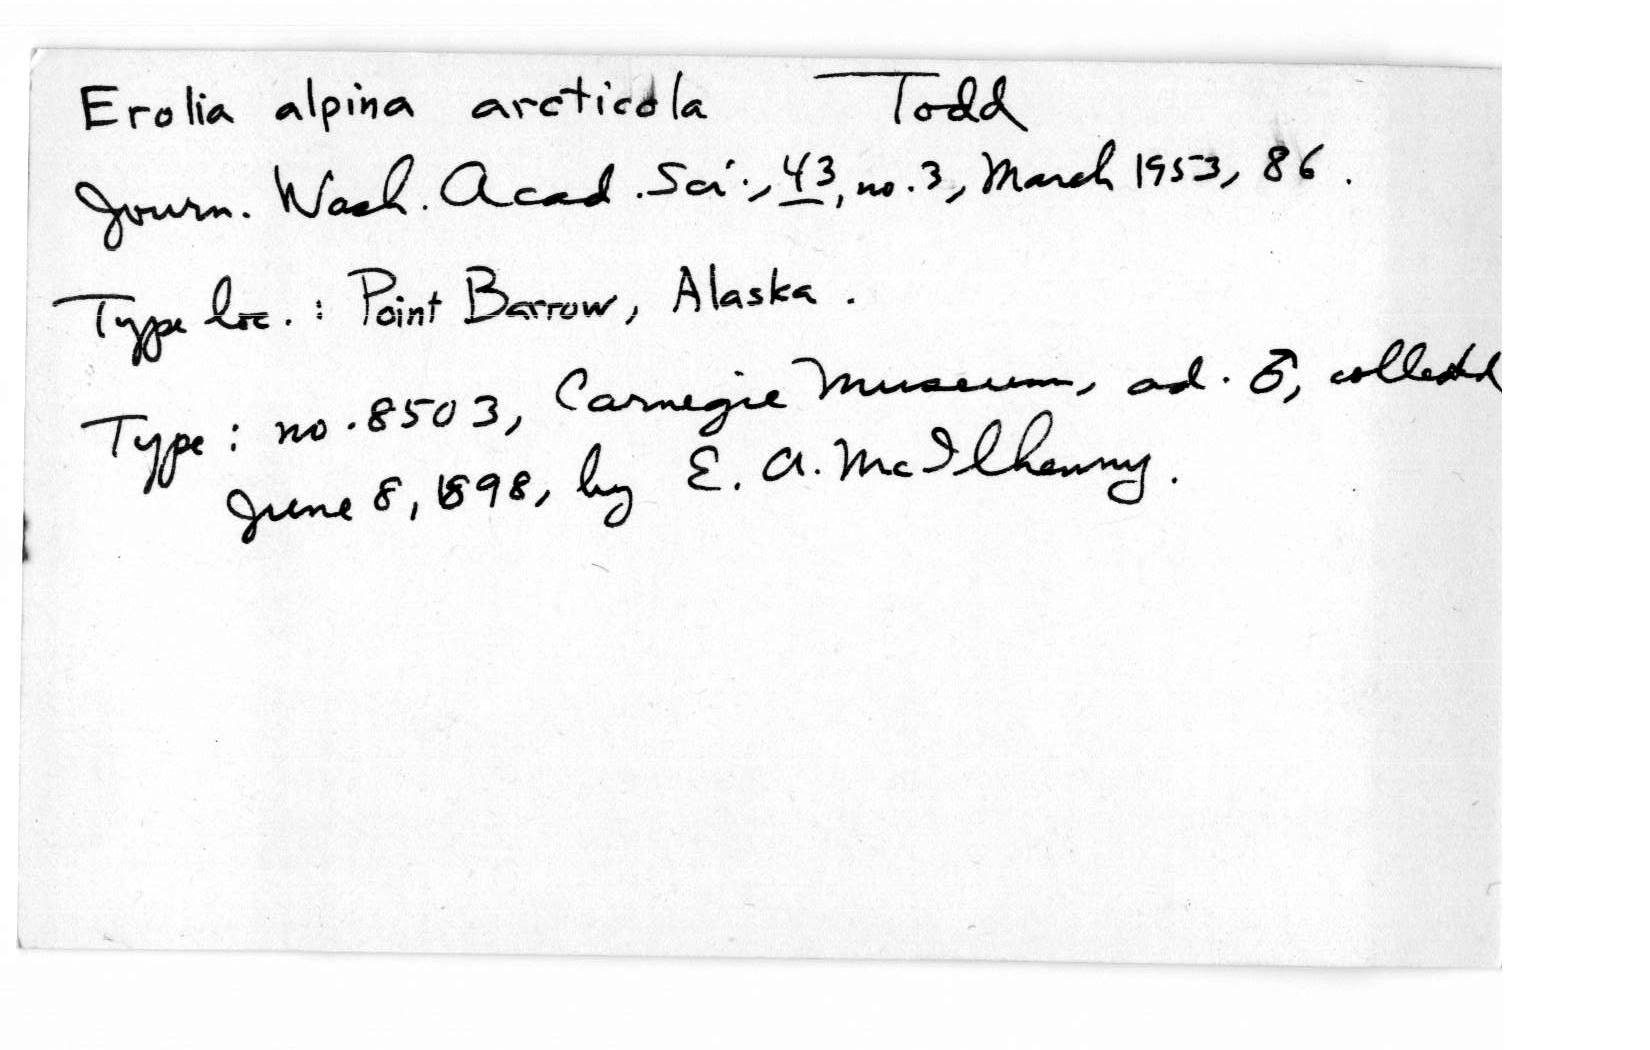 Erolia alpina arcticola Todd
Journ. Wash. Acad. Sci., 43, no. 3, March 1953, 86.
Type loc.: Point Barrow, Alaska.
Type: no. 8503, Carnegie Museum, ad. ♂, collected
June 8, 1898, by E. A. McIlhenny.